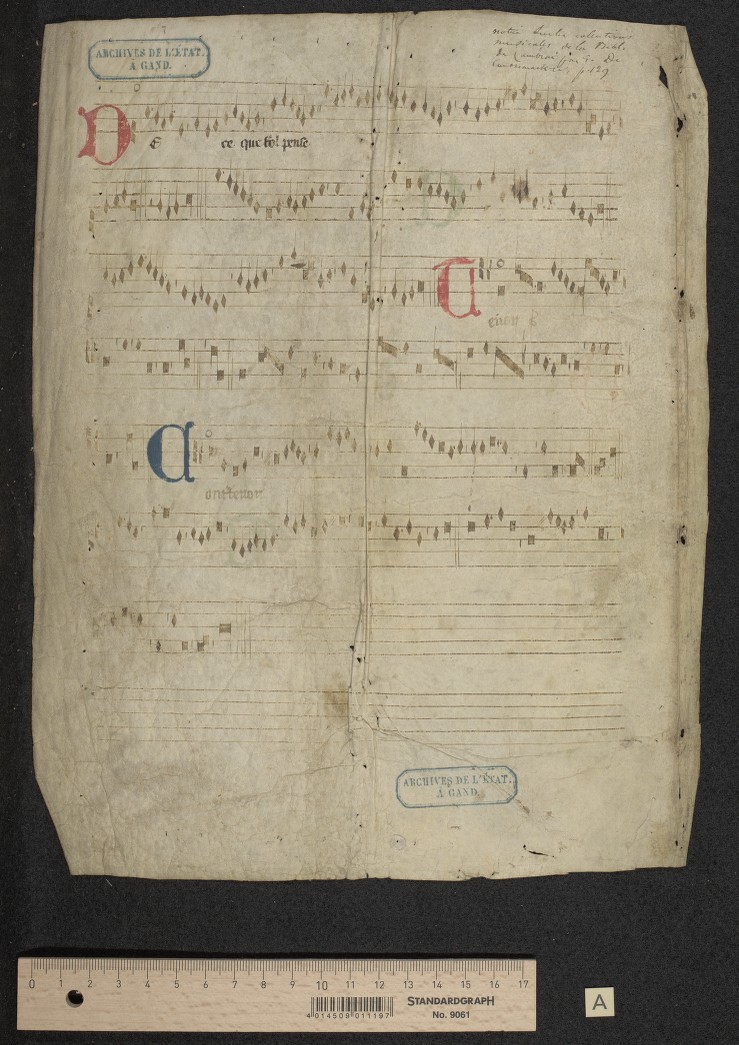 ARCHIVES DE L'ÉTAT.
À GAND.
notice sur les collections
musicales de la Bibl.
de Cambrai par E. De
Coussemaker, p. 129
DE ce que fol pense
Tenor
Contratenor
ARCHIVES DE L'ÉTAT.
À GAND.
0 1 2 3 4 5 6 7 8 9 10 11 12 13 14 15 16 17
4 014509 011197
STANDARDGRAPH
No. 9061
A